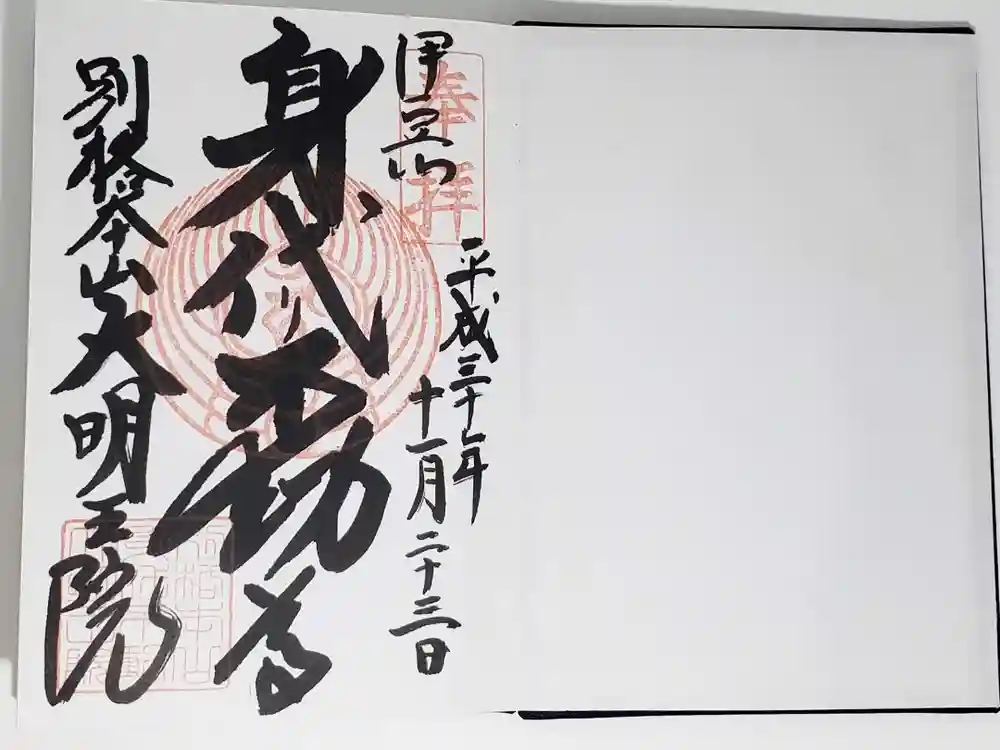 奉拝
伊豆山
平成三十年
十一月二十三日
身代不動尊
別格本山大明王院